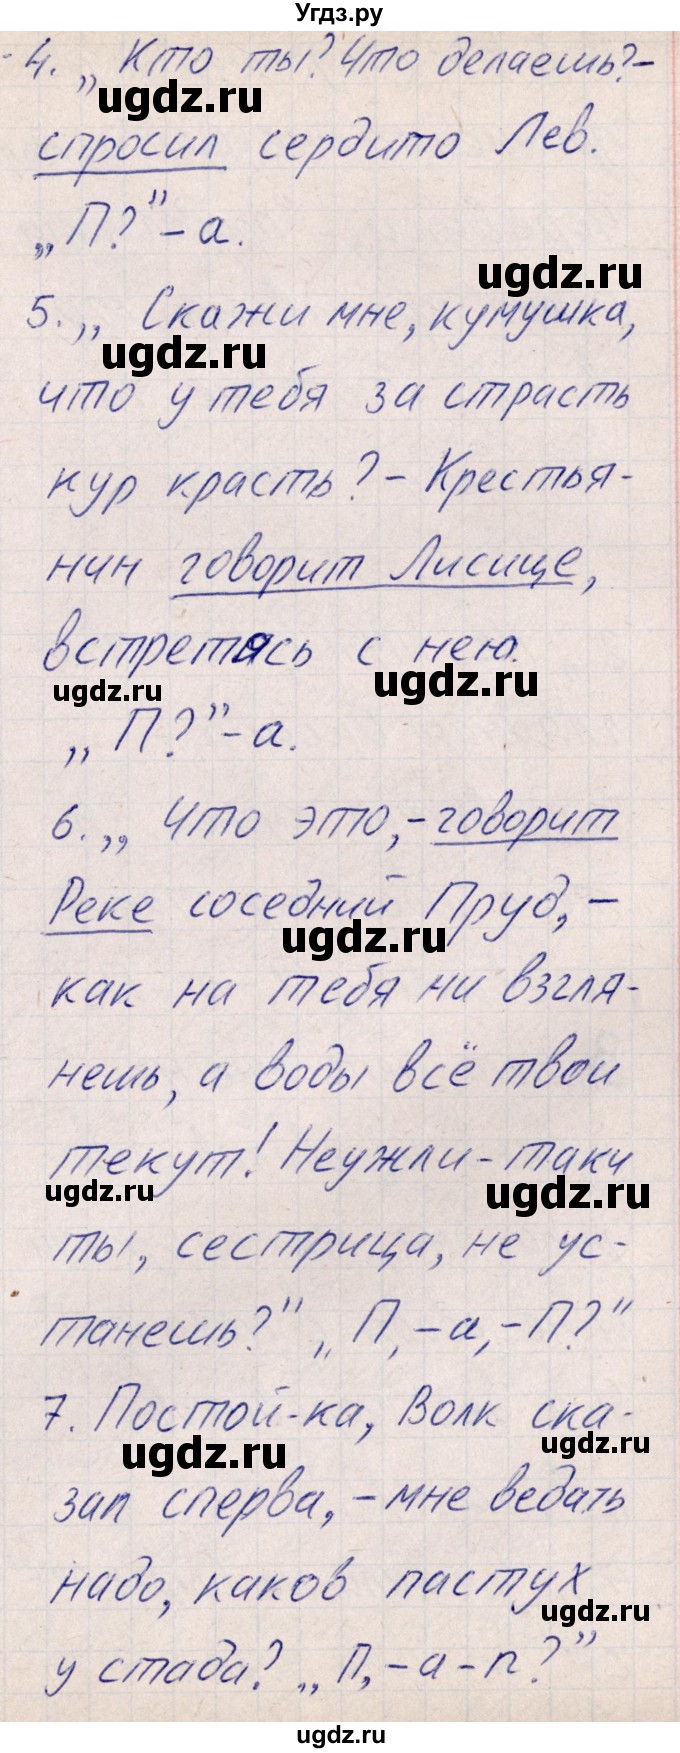 Угдз.ру
4. „Кто ты? Что делаешь?–
ugdz.ru
спросил сердито Лев.
„П?” – а.
ugdz.ru
5. „Скажи мне, кумушка,
ugdz.ru
что у тебя за страсть
кур красть? – Крестья-
нин говорит Лисице,
встретясь с нею.
ugdz.ru ugdz.ru
„П?” – а.
6. „Что это, – говорит
Реке соседний Пруд, –
ugdz.ru
как на тебя ни взгля-
нешь, а воды всё твои
текут! Неужли-таки
ugdz.ru ugdz.ru
ты, сестрица, не ус-
танешь?” „П, – а, – П?”
7. Постой-ка, Волк ска-
ugdz.ru ugdz.ru
зал сперва, – мне ведать
надо, каков пастух
ugdz.ru
у стада? „П, – а – п?”
ugdz.ru